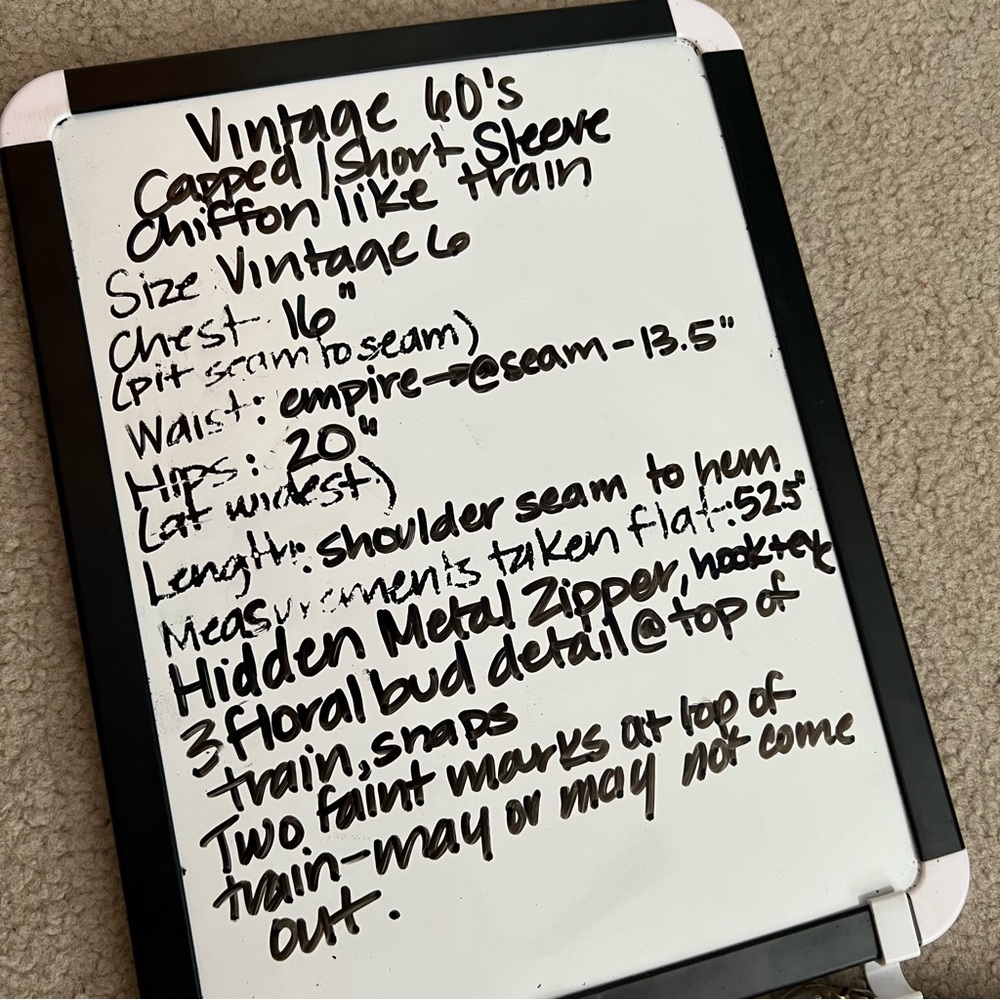 Vintage 60's
Capped / Short Sleeve
Chiffon like train
Size Vintage 6
Chest 16"
(pit seam to seam)
Waist: empire→@seam-13.5"
Hips: 20"
(at widest)
Length: shoulder seam to hem
Measurements taken flat: 52.5"
Hidden Metal Zipper, hook+eye
3 floral bud detail @ top of
train, snaps
Two faint marks at top of
train-may or may not come
out.